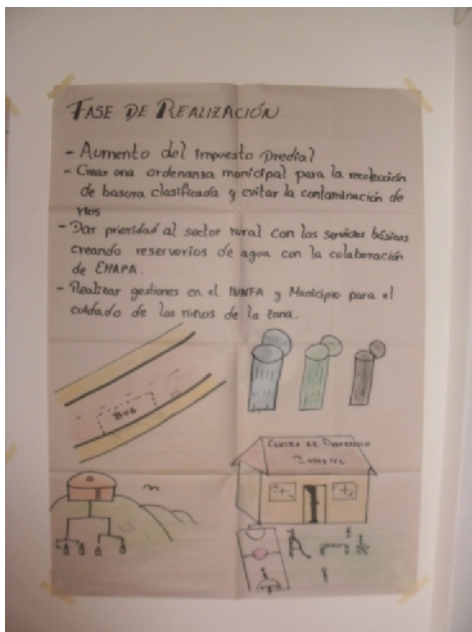 FASE DE REALIZACIÓN
- Aumento del Impuesto Predial
- Crear una ordenanza municipal para la recolección
de basura clasificada y evitar la contaminación de
rios
- Dar prioridad al sector rural con los servicios básicos
creando reservorios de agua con la colaboración
de EMAPA.
- Realizar gestiones en el INNFA y Municipio para el
cuidado de los niños de la zona.
BUS
CENTRO DE DESARROLLO